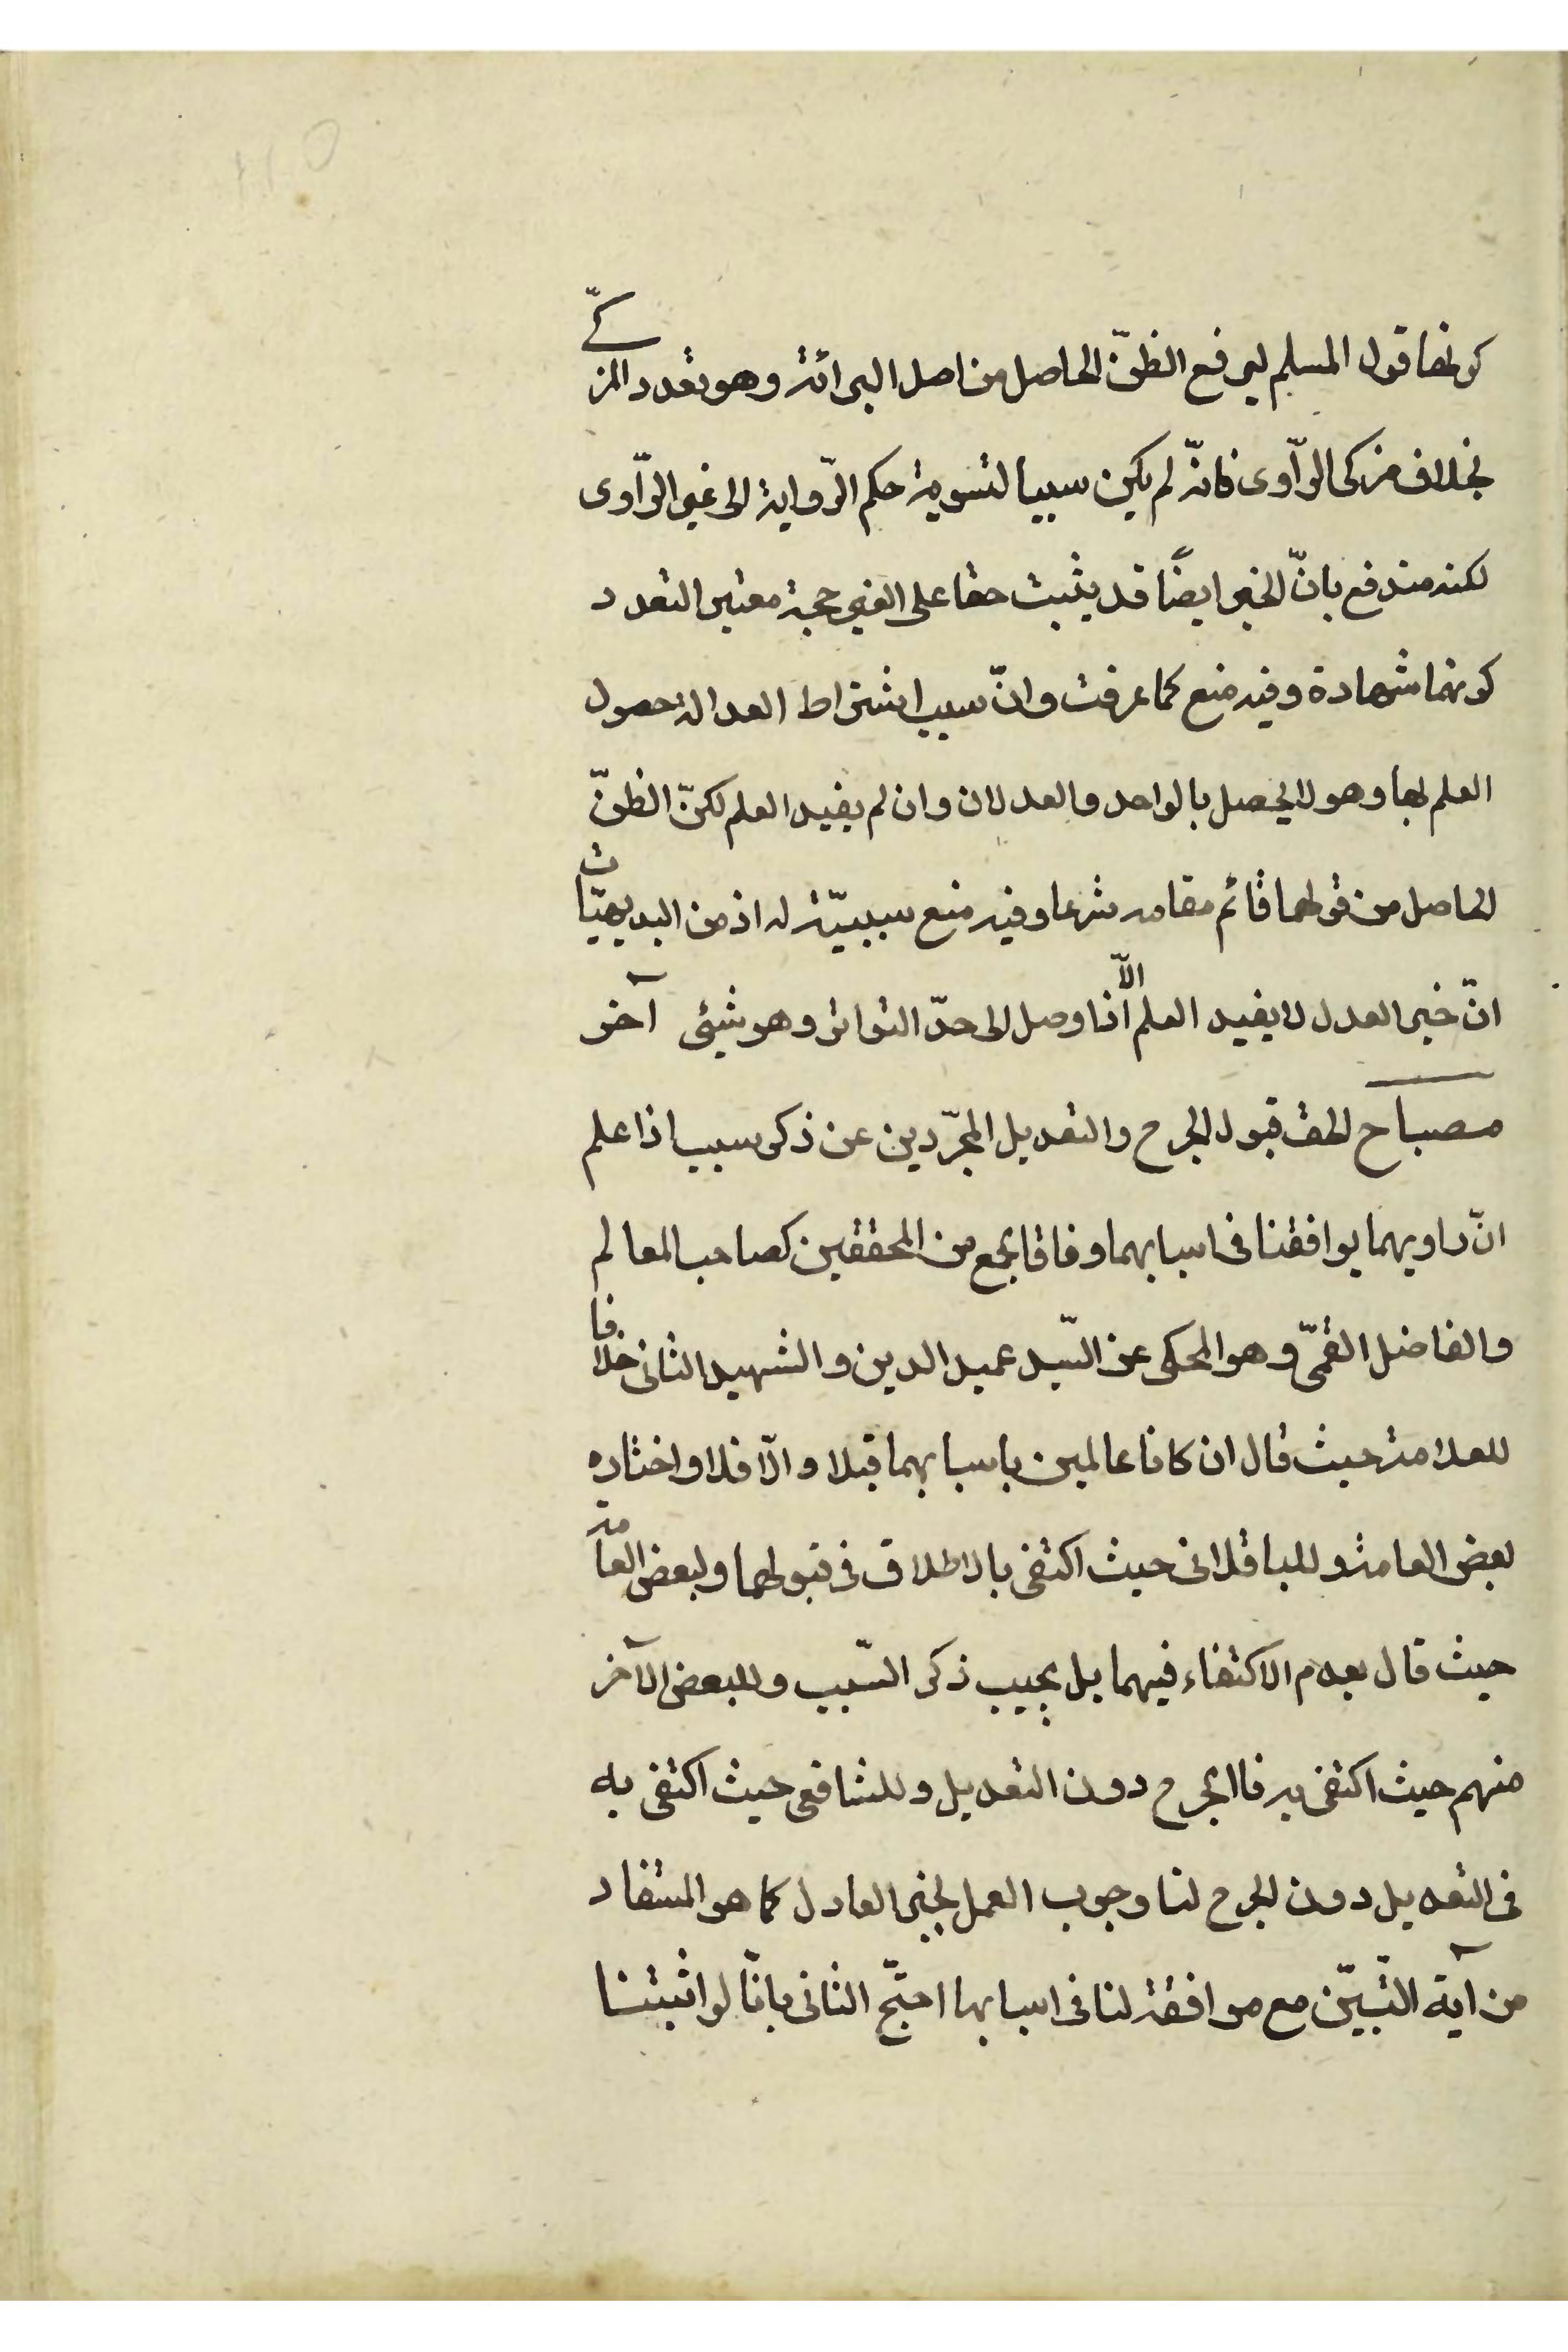 كونها قول المسلم ليرفع الظنّ الحاصل من اصل البرائة وهو تعدد المزكّى
بخلاف مزكى الرّاوى فانّه لم يكن سببا لتسوية حكم الرّواية الى غير الرّاوى
لكنه مندفع بانّ الخبر ايضًا قد يثبت حقا على الغير حجة معتبر التعدد
كونها شهادة وفيه منع كما عرفت وانّ سبب اشتراط العدالة حصول
العلم بها وهو لا يحصل بالواحد والعدلان وان لم يفيد العلم لكنّ الظنّ
الحاصل من قولهما قائم مقامه شرعا وفيه منع سببيّة له اذ من البديهيّات
انّ خبر العدل لا يفيد العلم الّا اذا وصل الى حدّ التواتر وهو شيئى آخر
مصباح الحق قبول الجرح والتعديل المجرّدين عن ذكر سبب اذا علم
انّ راويهما يوافقنا فى اسبابهما وفاقا بجمع من المحققين كصاحب المعالم
والفاضل القمّى وهو المحكى عن السّيد عميد الدين والشهيد الثانى خلافا
للعلامة حيث قال ان كانا عالمين باسبابهما قبلا والّا فلا واختاره
بعض العامة وللباقلانى حيث اكتفى بالاطلاق فى قبولهما ولبعض العامة
حيث قال بعدم الاكتفاء فيهما بل يجب ذكر السّبب وللبعض الآخر
منهم حيث اكتفى به فى الجرح دون التعديل وللشافعى حيث اكتفى به
فى التعديل دون الجرح لنا وجوب العمل بخبر العادل كما هو المستفاد
من آية التّبيّن مع موافقة لنا فى اسبابها احتجّ الثانى بانّا لو اثبتنا